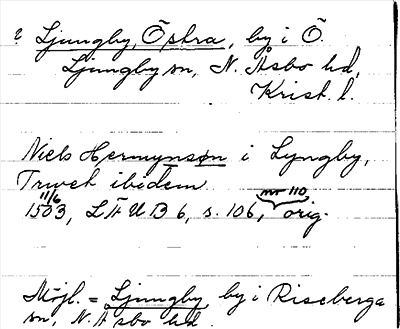 ? Ljungby, Östra, by i Ö.
Ljungby sn, N. Åsbo hd,
Krist. l.
Niels Hermynsøn i Lyngby,
Truet ibidem
11/6 nr 110
1503, LÄUB 6, s. 106, orig.
Möjl. = Ljungby, by i Riseberga
sn, N. Åsbo hd.